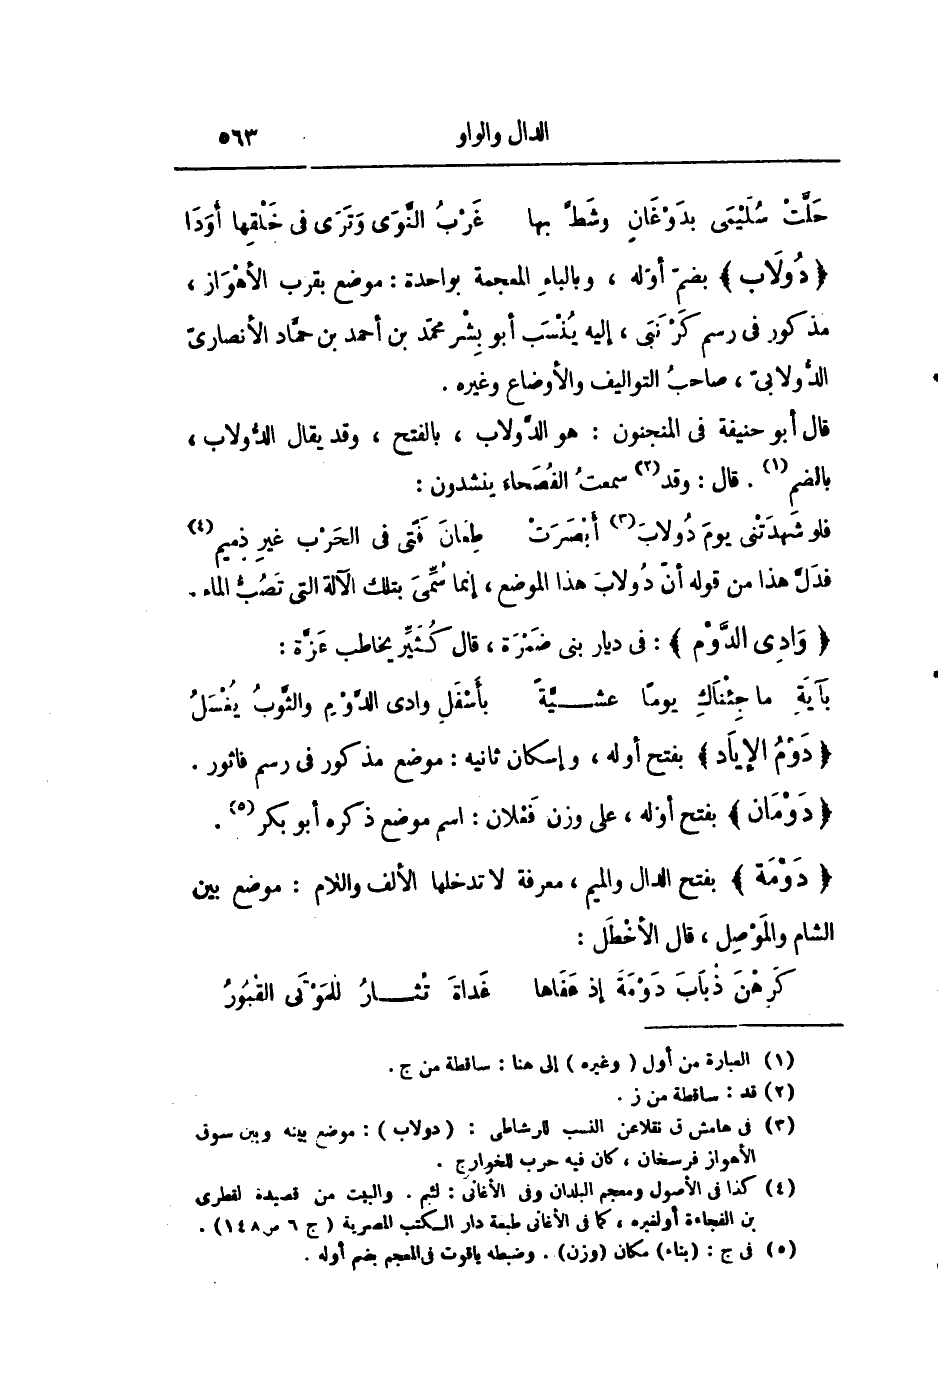 الدال والواو ٥٦٣
حَلَّتْ سُلَيْمَى بدَوْغَانٍ وشَطَّ بها غَرْبُ النَّوَى وَتَرَى فى خَلْقِها أَوَدَا
﴿ دُولَاب ﴾ بضمّ أوّله ، وبالباءِ المعجمة بواحدة : موضع بقرب الأهْوَاز ،
مذكور فى رسم كَرْنَبَى ، إليه يُنْسَب أبو بِشْر محمّد بن أحمد بن حمَّاد الأنصارىّ
الدُّولابىّ ، صاحبُ التواليف والأوضاع وغيره .
قال أبو حنيفة فى المنجنون : هو الدَّولاب ، بالفتح ، وقد يقال الدُّولاب ،
بالضم(١) . قال : وقد(٢) سمعتُ الفُصَحاء ينشدون :
فلو شَهِدَتْنى يومَ دُولابَ(٣) أَبْصَرَتْ طِعَانَ فَتًى فى الحَرْب غيرِ ذِميم(٤)
فدَلَّ هذا من قوله أنّ دُولابَ هذا الموضع ، إنما سُمِّىَ بتلك الآلة التى تَصُبُّ الماء .
﴿ وَادِى الدَّوْم ﴾ : فى ديار بنى ضَمْرَة ، قال كُثَيِّر يخاطب عَزَّة :
بَآيَةِ ما جِئْنَاكِ يومًا عشـــيَّةً بأَسْفَلِ وادى الدَّوْمِ والثَّوبُ يُغْسَلُ
﴿ دَوْمُ الإيَاد ﴾ بفتح أوله ، وإسكان ثانيه : موضع مذكور فى رسم فاثور .
﴿ دَوْمَان ﴾ بفتح أوّله ، على وزن فَعْلان : اسم موضع ذكره أبو بكر(٥) .
﴿ دَوْمَة ﴾ بفتح الدال والميم ، معرفة لا تدخلها الألف واللام : موضع بين
الشام والمَوْصِل ، قال الأخْطَل :
كَرِهْنَ ذُبَابَ دَوْمَةَ إذ عَفَاها غَداةَ تُثـــارُ للمَوْتَى القُبُورُ
(١) العبارة من أول ( وغيره ) إلى هنا : ساقطة من ج .
(٢) قد : ساقطة من ز .
(٣) فى هامش ق نقلا عن النسب للرشاطى : ( دولاب ) : موضع بينه وبين سوق
الأهواز فرسخان ، كان فيه حرب للخوارج .
(٤) كذا فى الأصول ومعجم البلدان وفى الأغانى : لئيم . والبيت من قصيدة لقطرى
بن الفجاءة أولغيره ، كما فى الأغانى طبعة دار الكتب المصرية ( ج ٦ ص ١٤٨ ) .
(٥) فى ج : (بناء) مكان (وزن) . وضبطه ياقوت فى المعجم بضم أوله .